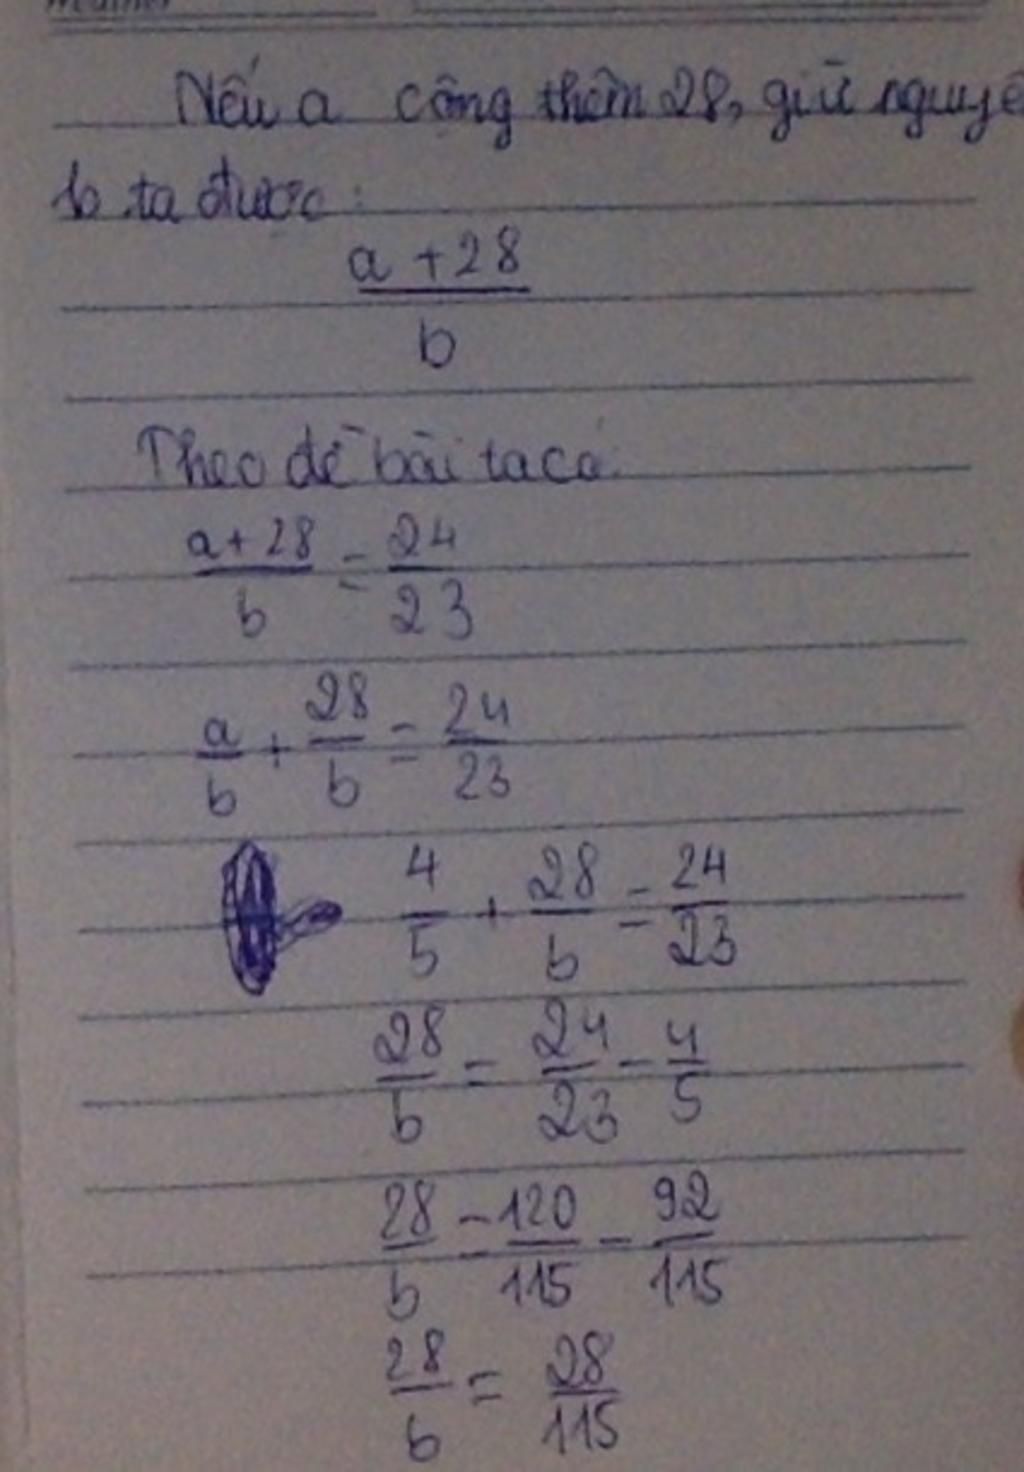 Nếu a cộng thêm 28, giữ nguyê
b ta được:
a + 28
b
Theo đề bài ta có:
a + 28 / b = 24 / 23
a / b + 28 / b = 24 / 23
4 / 5 + 28 / b = 24 / 23
28 / b = 24 / 23 - 4 / 5
28 / b = 120 / 115 - 92 / 115
28 / b = 28 / 115